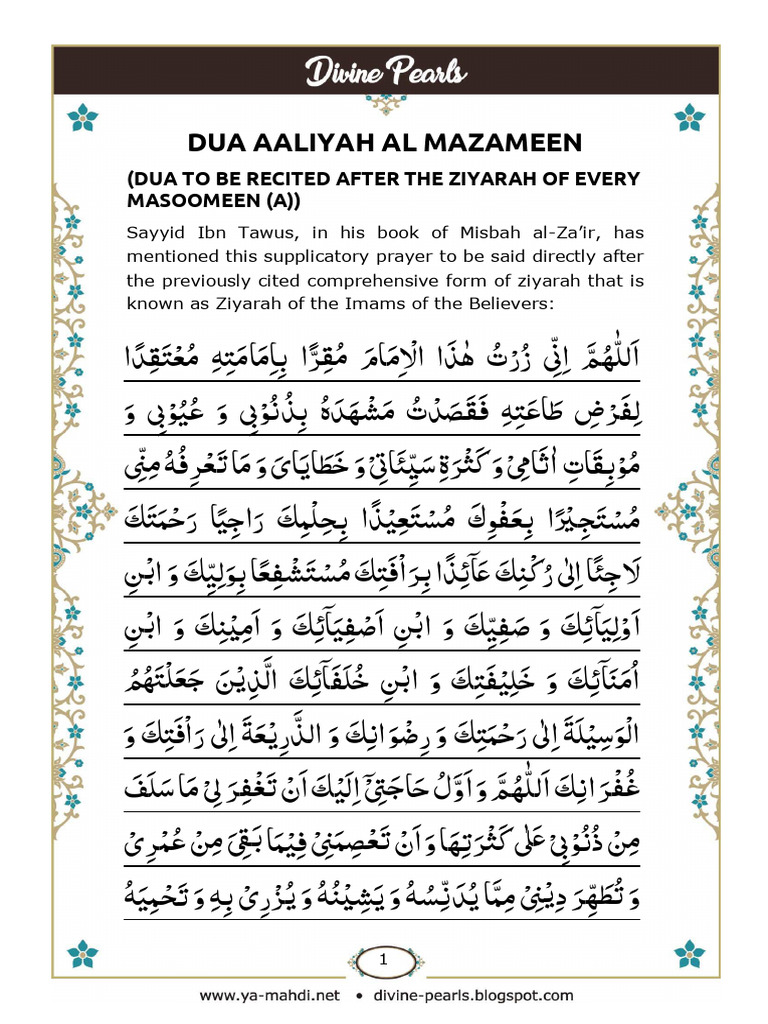 Divine Pearls
DUA AALIYAH AL MAZAMEEN
(DUA TO BE RECITED AFTER THE ZIYARAH OF EVERY
MASOOMEEN (A))
Sayyid Ibn Tawus, in his book of Misbah al-Za’ir, has
mentioned this supplicatory prayer to be said directly after
the previously cited comprehensive form of ziyarah that is
known as Ziyarah of the Imams of the Believers:
اَللّٰهُمَّ اِنِّيْ زُرْتُ هٰذَا الْاِمَامَ مُقِرًّا بِاِمَامَتِهِ مُعْتَقِدًا
لِفَرْضِ طَاعَتِهِ فَقَصَدْتُ مَشْهَدَهُ بِذُنُوْبِي وَ عُيُوْبِي وَ
مُوْبِقَاتِ اٰثَامِيْ وَ كَثْرَةِ سَيِّئَاتِيْ وَ خَطَايَايَ وَ مَا تَعْرِفُهُ مِنِّي
مُسْتَجِيْرًا بِعَفْوِكَ مُسْتَعِيْذًا بِحِلْمِكَ رَاجِيًا رَحْمَتَكَ
لَاجِئًا اِلٰى رُكْنِكَ عَآئِذًا بِرَاْفَتِكَ مُسْتَشْفِعًا بِوَلِيِّكَ وَ ابْنِ
اَوْلِيَآئِكَ وَ صَفِيِّكَ وَ ابْنِ اَصْفِيَآئِكَ وَ اَمِيْنِكَ وَ ابْنِ
اُمَنَآئِكَ وَ خَلِيْفَتِكَ وَ ابْنِ خُلَفَآئِكَ الَّذِيْنَ جَعَلْتَهُمُ
الْوَسِيْلَةَ اِلٰى رَحْمَتِكَ وَ رِضْوَانِكَ وَ الذَّرِيْعَةَ اِلٰى رَاْفَتِكَ وَ
غُفْرَانِكَ اَللّٰهُمَّ وَ اَوَّلُ حَاجَتِيْٓ اِلَيْكَ اَنْ تَغْفِرَ لِيْ مَا سَلَفَ
مِنْ ذُنُوْبِيْ عَلٰى كَثْرَتِهَا وَ اَنْ تَعْصِمَنِيْ فِيْمَا بَقِيَ مِنْ عُمْرِيْ
وَ تُطَهِّرَ دِيْنِيْ مِمَّا يُدَنِّسُهُ وَ يَشِيْنُهُ وَ يُزْرِيْ بِهِ وَ تَحْمِيَهُ
1
www.ya-mahdi.net • divine-pearls.blogspot.com